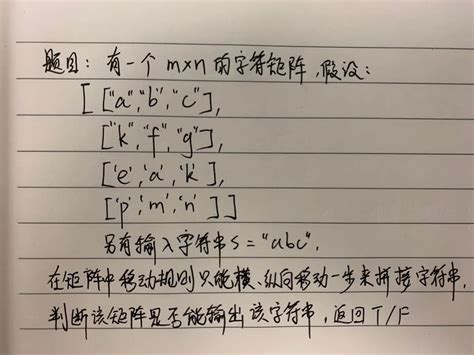 题目: 有一个 m×n 的字符矩阵,假设:
[ ["a","b","c"],
["k","f","g"],
['e','a','k'],
['p','m','n'] ]
另有输入字符串 s = "abc",
在矩阵中移动规则只能横、纵向移动一步来拼接字符串,
判断该矩阵是否能输出该字符串,返回 T/F